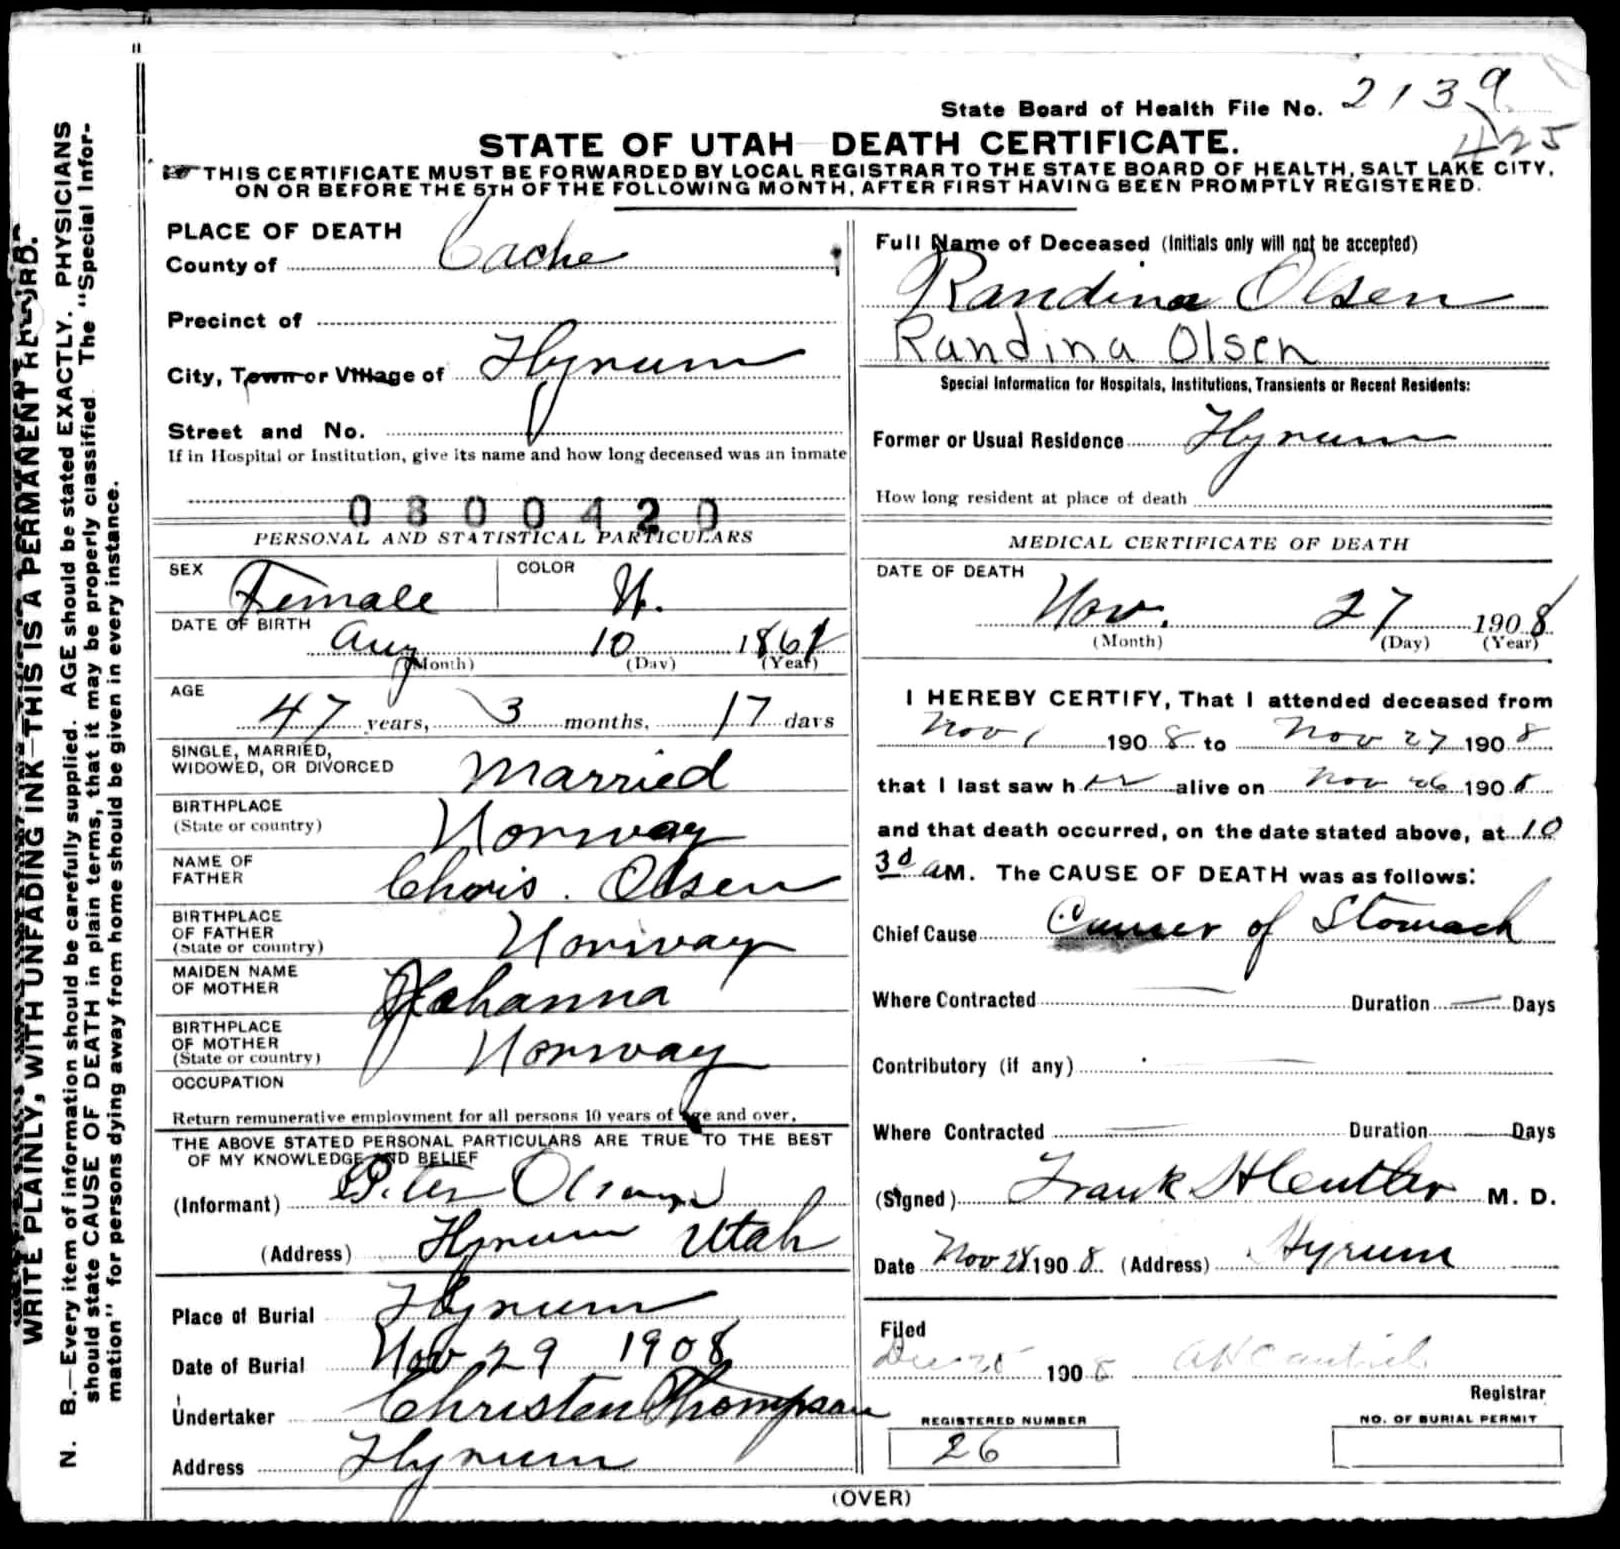 State Board of Health File No. 2139
425
STATE OF UTAH DEATH CERTIFICATE.
THIS CERTIFICATE MUST BE FORWARDED BY LOCAL REGISTRAR TO THE STATE BOARD OF HEALTH, SALT LAKE CITY,
ON OR BEFORE THE 5TH OF THE FOLLOWING MONTH, AFTER FIRST HAVING BEEN PROMPTLY REGISTERED.
WRITE PLAINLY, WITH UNFADING INK—THIS IS A PERMANENT RECORD.
N. B.—Every item of information should be carefully supplied. AGE should be stated EXACTLY. PHYSICIANS
should state CAUSE OF DEATH in plain terms, that it may be properly classified. The "Special Infor-
mation" for persons dying away from home should be given in every instance.
PLACE OF DEATH
County of Cache
Precinct of
City, Town or Village of Hyrum
Street and No.
If in Hospital or Institution, give its name and how long deceased was an inmate
0800420
PERSONAL AND STATISTICAL PARTICULARS
SEX Female COLOR W.
DATE OF BIRTH
Aug 10 1861
(Month) (Day) (Year)
AGE
47 years, 3 months, 17 days
SINGLE, MARRIED,
WIDOWED, OR DIVORCED Married
BIRTHPLACE
(State or country) Norway
NAME OF
FATHER Chris. Olsen
BIRTHPLACE
OF FATHER
(State or country) Norway
MAIDEN NAME
OF MOTHER Johanna
BIRTHPLACE
OF MOTHER
(State or country) Norway
OCCUPATION
Return remunerative employment for all persons 10 years of age and over.
THE ABOVE STATED PERSONAL PARTICULARS ARE TRUE TO THE BEST
OF MY KNOWLEDGE AND BELIEF
(Informant) Peter Olsen
(Address) Hyrum Utah
Place of Burial Hyrum
Date of Burial Nov 29 1908
Undertaker Christen Thompson
Address Hyrum
Full Name of Deceased (Initials only will not be accepted)
Randina Olsen
Randina Olsen
Special Information for Hospitals, Institutions, Transients or Recent Residents:
Former or Usual Residence Hyrum
How long resident at place of death
MEDICAL CERTIFICATE OF DEATH
DATE OF DEATH
Nov. 27 1908
(Month) (Day) (Year)
I HEREBY CERTIFY, That I attended deceased from
Nov 1 1908 to Nov 27 1908
that I last saw her alive on Nov 26 1908
and that death occurred, on the date stated above, at 10
30 AM. The CAUSE OF DEATH was as follows:
Chief Cause Cancer of Stomach
Where Contracted Duration Days
Contributory (if any)
Where Contracted Duration Days
(Signed) Frank H M. D.
Date Nov 28 1908 (Address) Hyrum
Filed
Dec 1908
Registrar
REGISTERED NUMBER
26
NO. OF BURIAL PERMIT
(OVER)